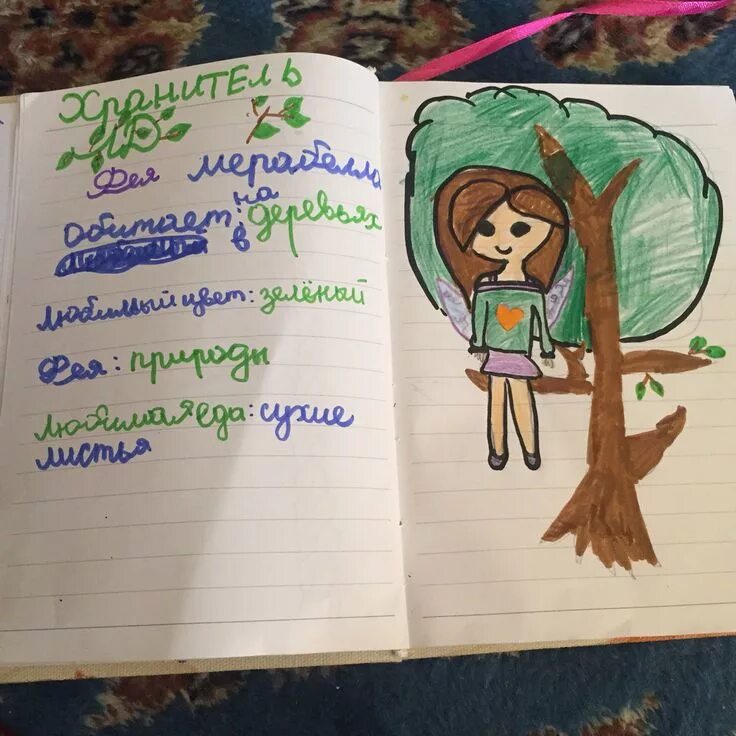 ХРАНИТЕЛЬ
ЛД
Фея Мерабелла
Обитает: на деревьях
в
Любимый цвет: зелёный
Фея: природы
Любимая еда: сухие
листья